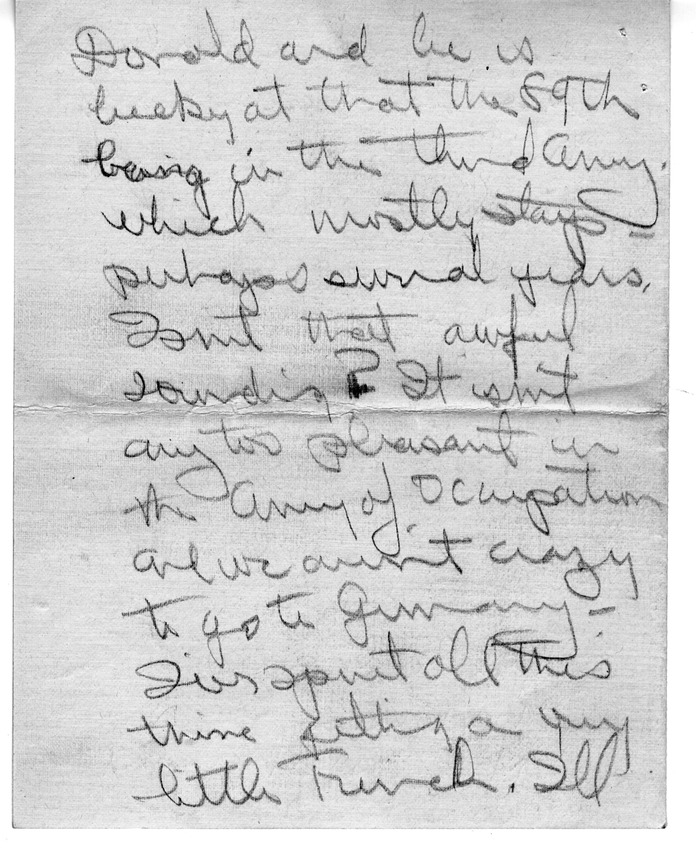 Donald and he is
lucky at that the 89th
being in the third Army.
which mostly stays –
perhaps several years.
Isnt that awful
sounding? It isnt
any too pleasant in
the Army of Occupation
and we arent crazy
to go to Germany –
Ive spent all this
time getting a very
little French. Ill